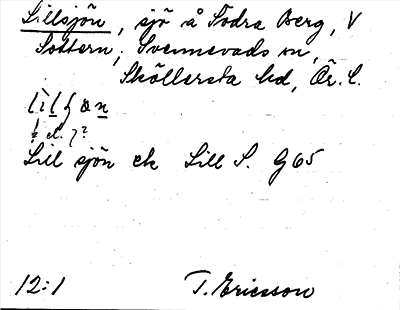 Lillsjön, sjö å Södra Berg, V
Sottern, Svennevads sn,
Sköllersta hd, Ör. l.
Lill sjön ek Lill S. G65
12:1 T. Ericsson